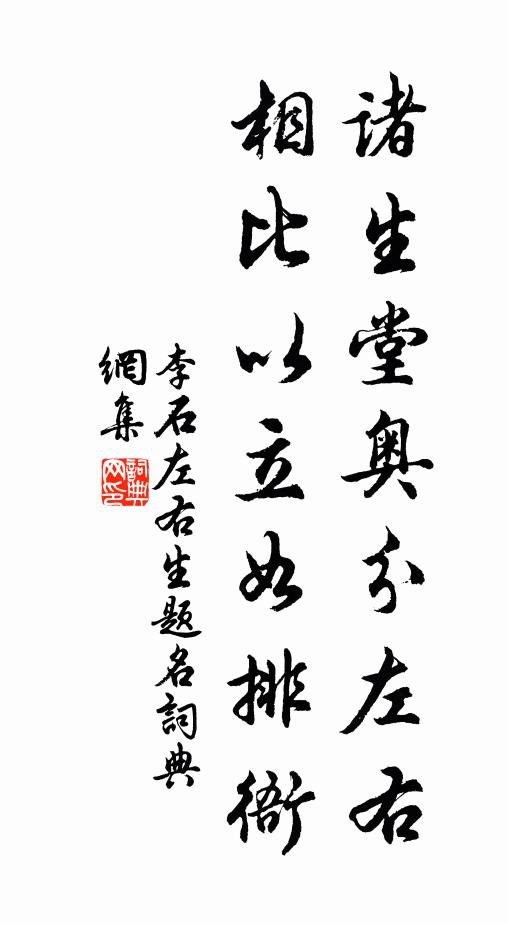 諸生堂奧分左右
相比以立如排衙
李石左右生題名詞典
網集
詞典
网印